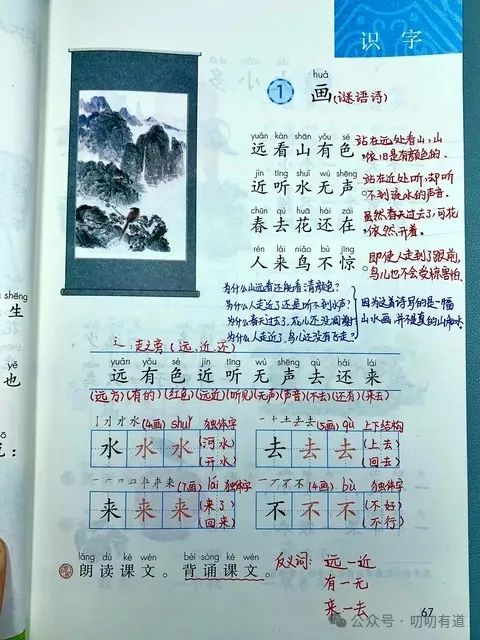 识字
huà
1 画(谜语诗)
yuǎn kàn shān yǒu sè
远看山有色
站在远处看山,山
依旧是有颜色的.
jìn tīng shuǐ wú shēng
近听水无声
站在近处听,却听
不到流水的声音.
chūn qù huā hái zài
春去花还在
虽然春天过去了,可花
依然开着.
rén lái niǎo bù jīng
人来鸟不惊
即使人走到了跟前,
鸟儿也不会受惊害怕.
为什么山远看还能看清颜色?
为什么人走近了还是听不到水声?
为什么春天过去了,花儿还没凋谢?
为什么人走近了,鸟儿还没有飞走?
因为这首诗写的是一幅
山水画,并不是真的山和水
辶 走之旁 (远、近、还)
yuǎn yǒu sè jìn tīng wú shēng qù hái lái
远有色近听无声去还来
(远方)(有的)(红色)(远近)(听见)(无声)(声音)(不去)(还有)(来去)
(4画) shuǐ 独体字
水水水
(河水)
(开水)
(5画) qù 上下结构
去去去
(上去)
(回去)
(7画) lái 独体字
来来来
(来了)
(回来)
(4画) bù 独体字
不不不
(不好)
(不行)
lǎng dú kè wén
朗读课文。
bèi sòng kè wén
背诵课文。
反义词: 远—近
有—无
来—去
67
公众号·叨叨有道
shēng
生
yě
也